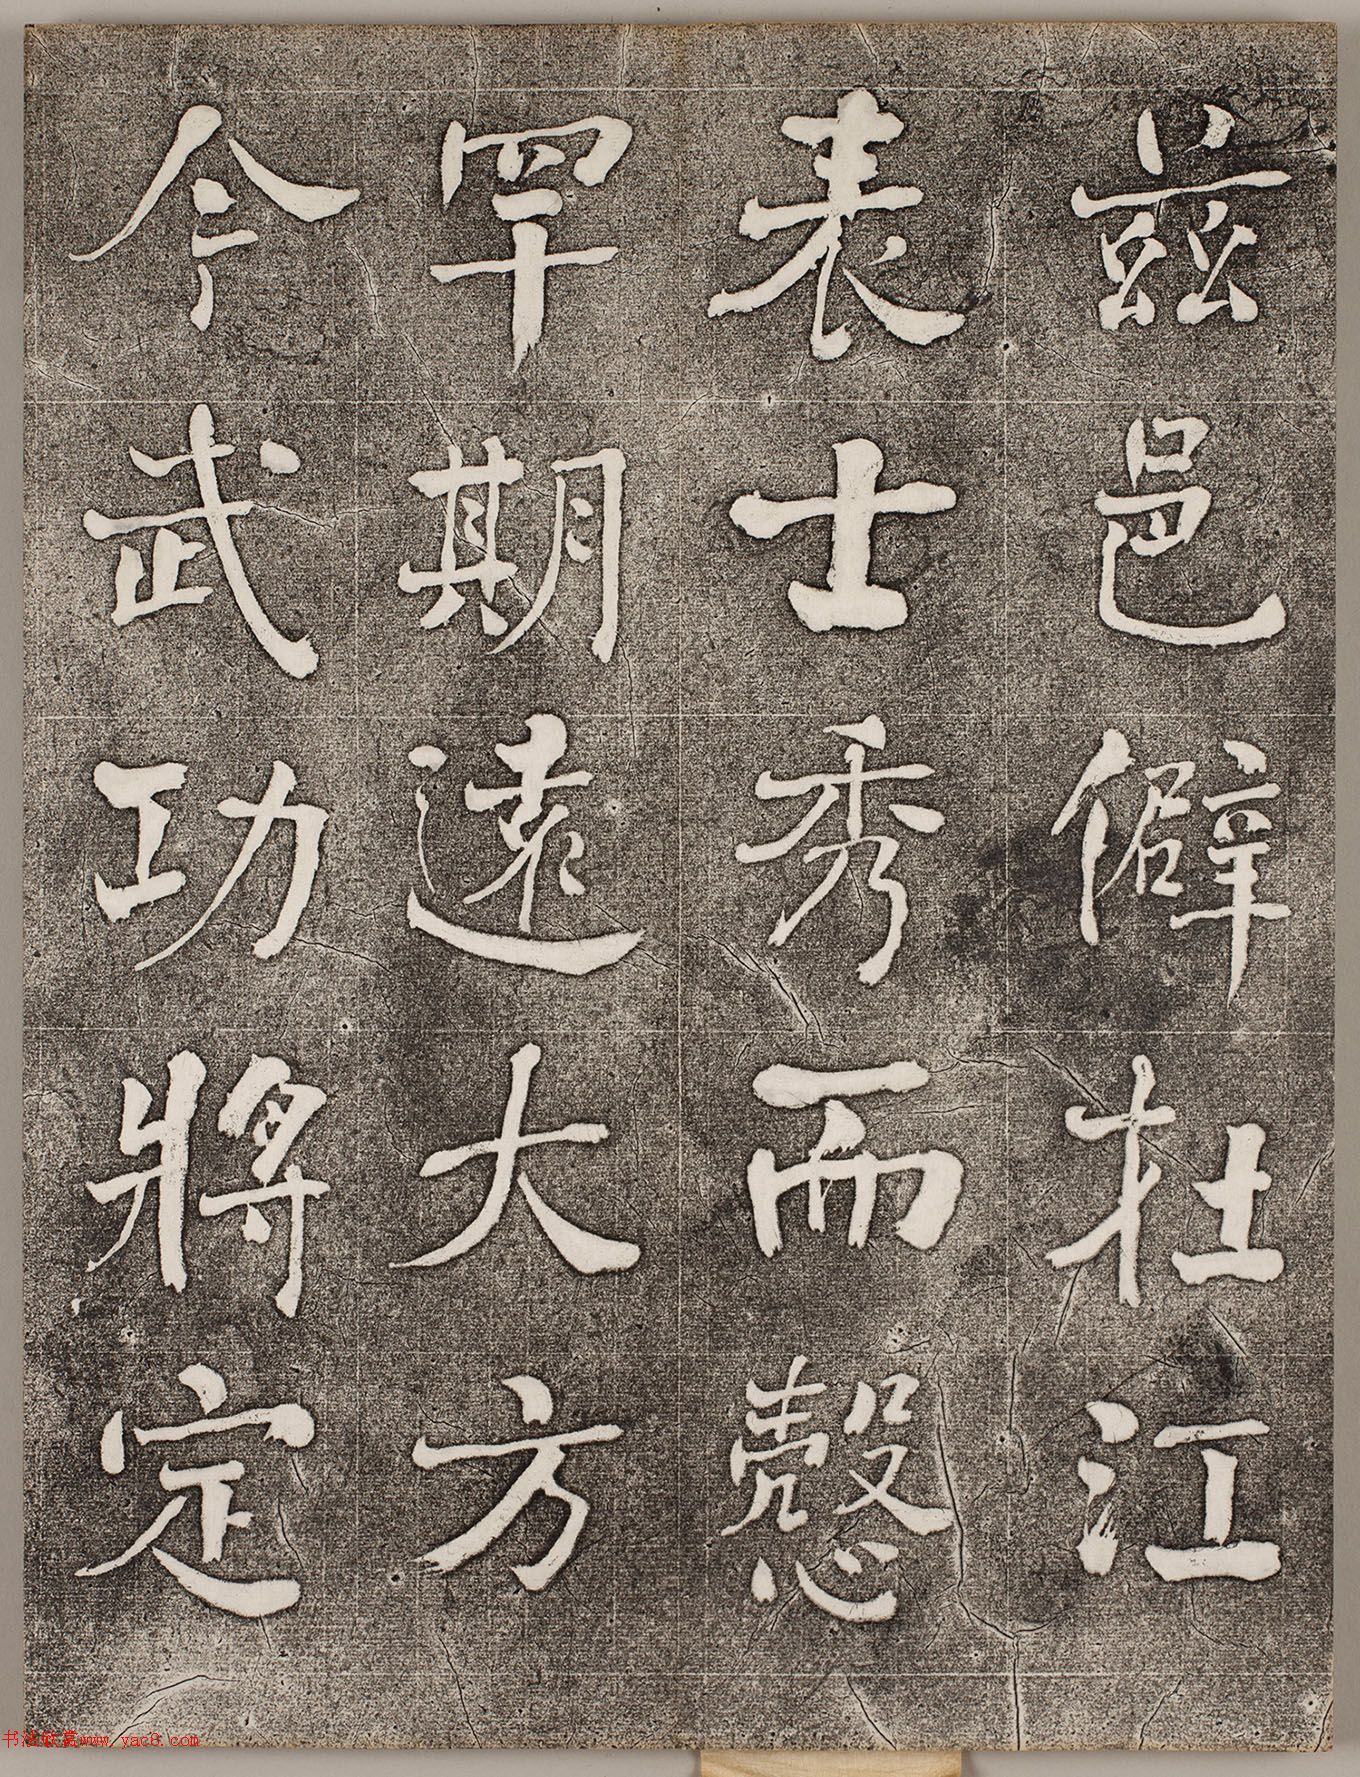 茲邑僻杜江
表士秀而慤
罕期遠大方
今武功將定
书法欣赏www.yac8.com